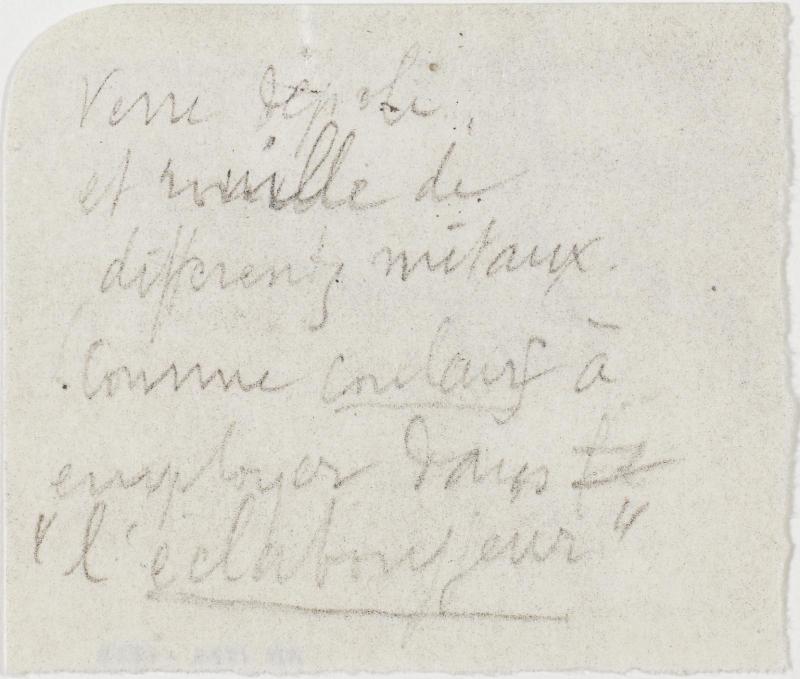 Verre dépoli,
et rouille de
différents métaux.
Comme couleurs à
employer dans
"l'éclabousseur"